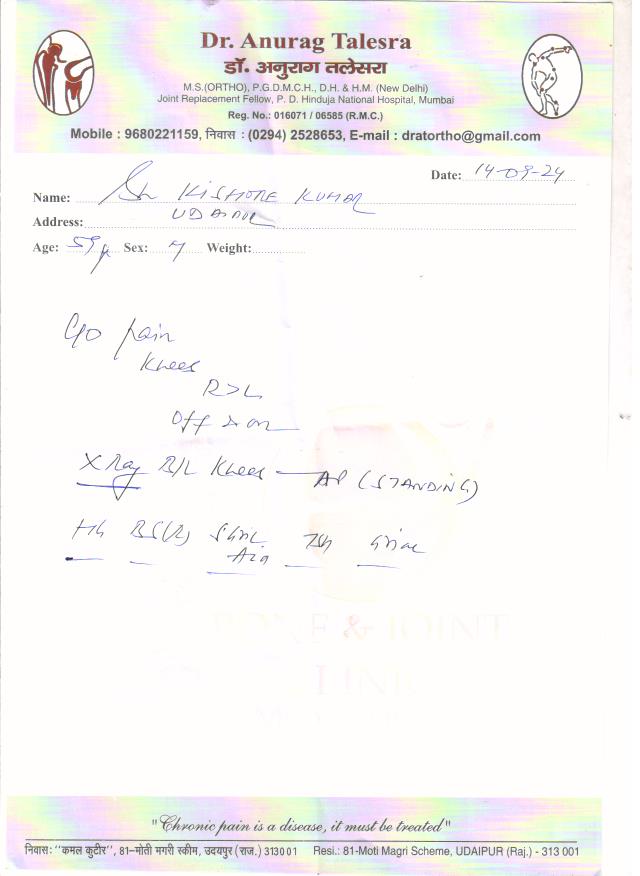 Dr. Anurag Talesra
डॉ. अनुराग तलेसरा
M.S.(ORTHO), P.G.D.M.C.H., D.H. & H.M. (New Delhi)
Joint Replacement Fellow, P. D. Hinduja National Hospital, Mumbai
Reg. No.: 016071 / 06585 (R.M.C.)
Mobile : 9680221159, निवास : (0294) 2528653, E-mail : dratortho@gmail.com
Date: 14-09-24
Name: Sh KISHORE KUMAR
Address: UDAIPUR
Age: 59 Sex: Weight:
C/O pain
Knees
R>L
Off & on
X Ray B/L Knees — AP (STANDING)
Hb BS(R)
BONE & JOINT
"Chronic pain is a disease, it must be treated"
निवास: "कमल कुटीर", 81-मोती मगरी स्कीम, उदयपुर (राज.) 313001 Resi.: 81-Moti Magri Scheme, UDAIPUR (Raj.) - 313 001